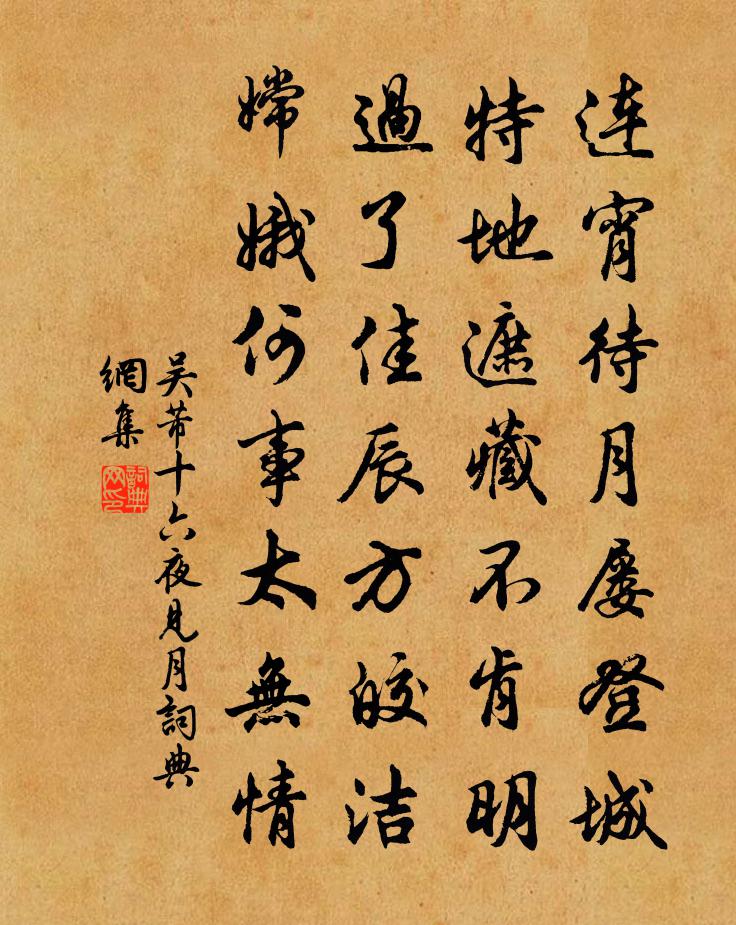 連宵待月屡登城
特地遮藏不肯明
過了佳辰方皎洁
嫦娥何事太無情
吴芾十六夜見月詞典
網集
詞典網印